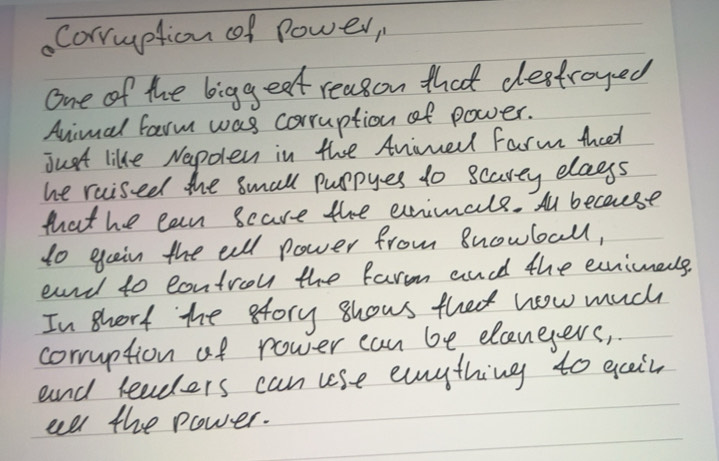 . Corruption of Power,,
One of the biggest reason that destroyed
Animal farm was corruption of power.
Just like Napoleu in the Animal Farm that
he raised the small puppyes to scarey dogs
that he can scare the animals. All because
to gain the all power from Snowball,
and to control the farm and the animals.
In short the story shows that how much
corruption of power can be dangers,.
and leaders can use anything to gain
all the power.